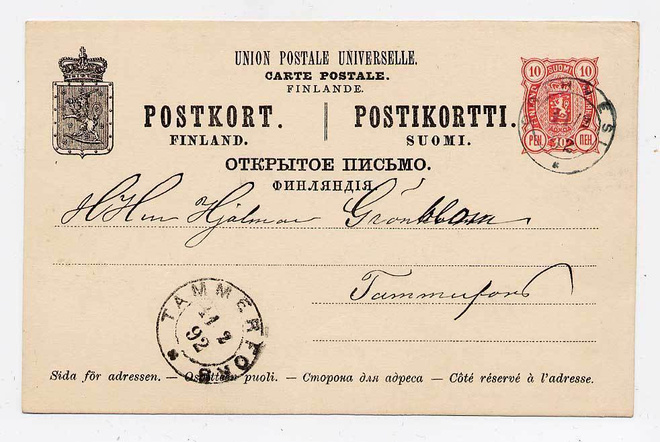 UNION POSTALE UNIVERSELLE.
CARTE POSTALE.
FINLANDE.
POSTKORT. POSTIKORTTI.
FINLAND. SUOMI.
ОТКРЫТОЕ ПИСЬМО.
ФИНЛЯНДІЯ.
10 SUOMI 10
PEN ПЕН
ESI
Hjalmar Grönblom
Tammerfors
TAMMERFORS
21 2
92
Sida för adressen. — Osoitteen puoli. — Сторона для адреса — Côté réservé à l'adresse.